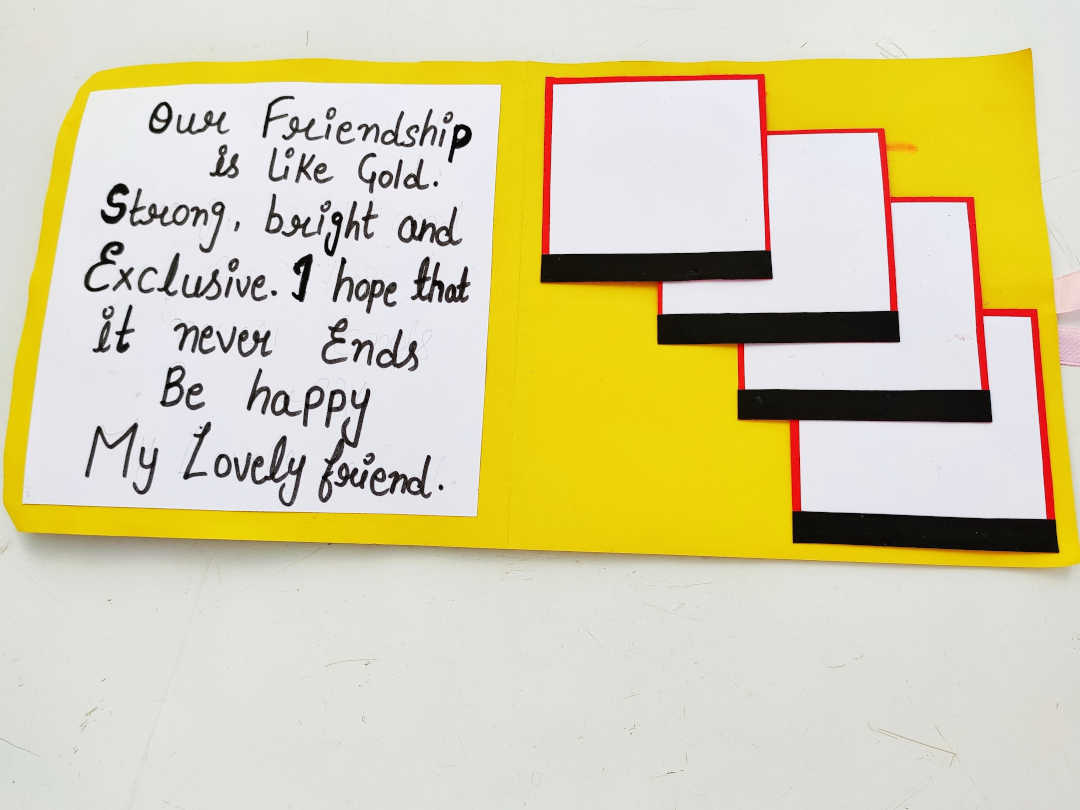 Our Friendship
is Like Gold.
Strong, bright and
Exclusive. I hope that
it never Ends
Be happy
My Lovely friend.